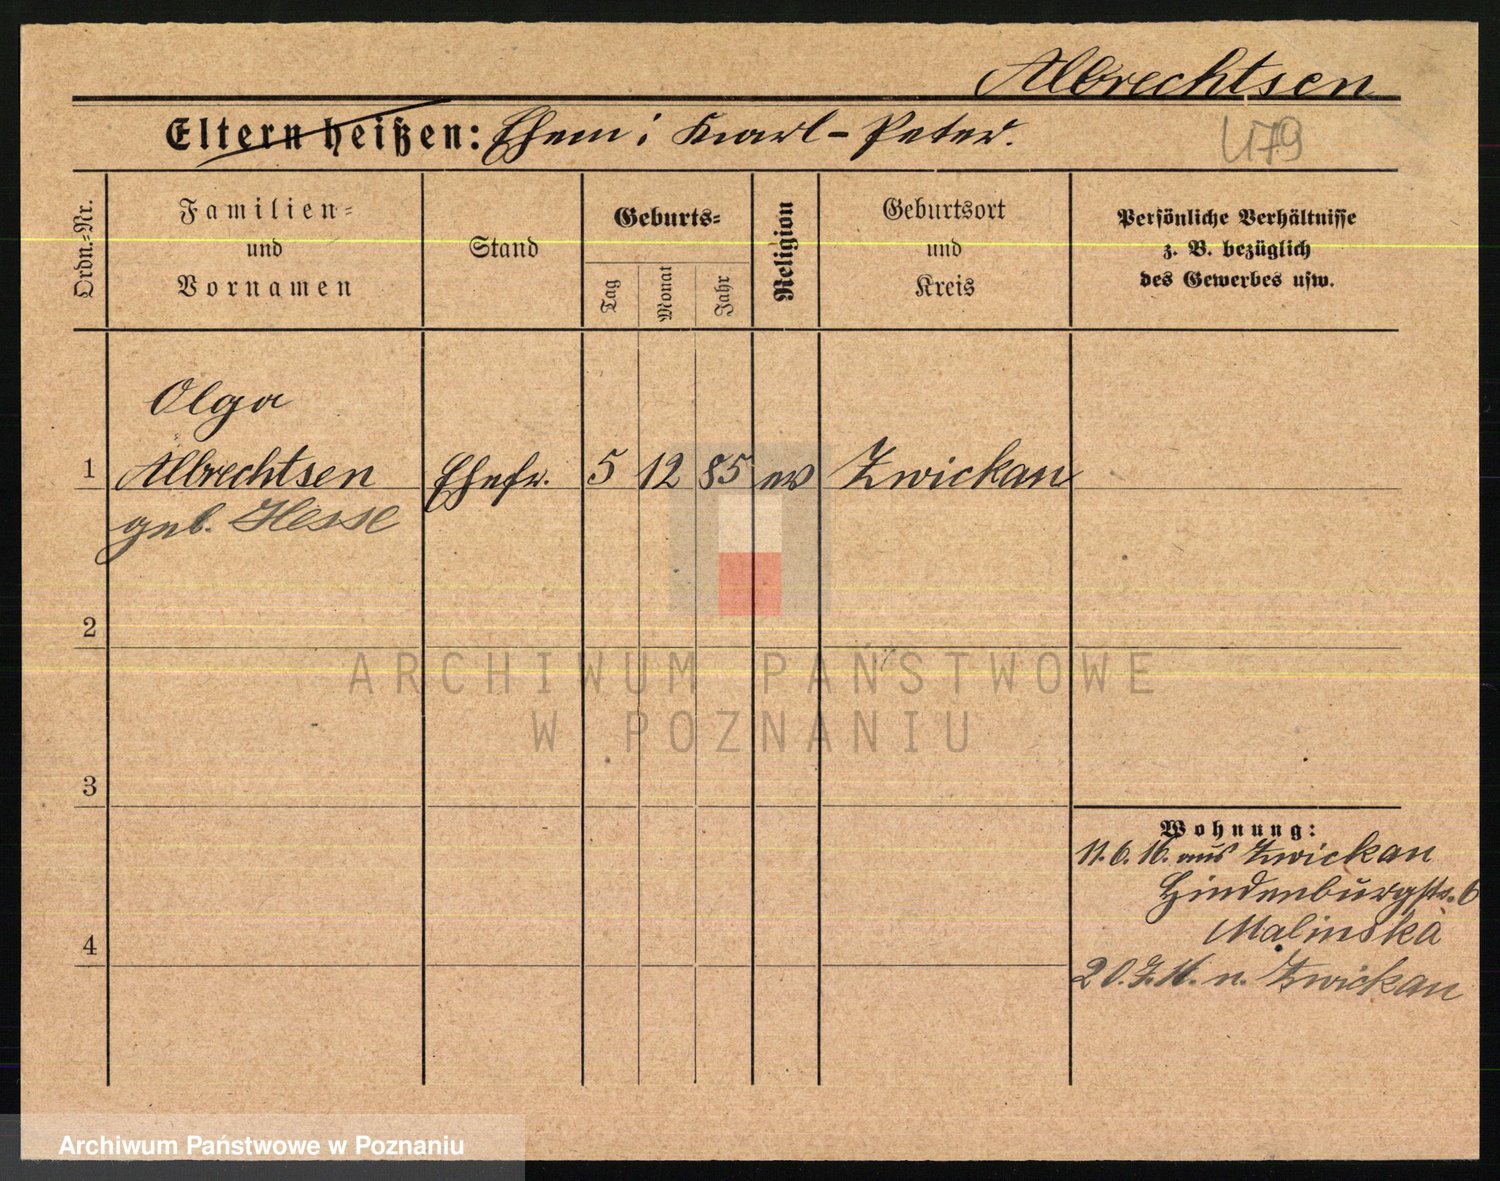 Albrechtsen
Eltern heißen: Ehem: Karl-Peter.
4179
Ordn.-Nr.
Familien-
und
Vornamen
Stand
Geburts-
Tag
Monat
Jahr
Religion
Geburtsort
und
Kreis
Persönliche Verhältnisse
z. B. bezüglich
des Gewerbes usw.
Olga
1 Albrechtsen Ehefr. 5 12 85 ev Zwickau
geb. Hesse
2
ARCHIWUM PAŃSTWOWE
W POZNANIU
3
Wohnung:
11.6.16. aus Zwickau
Hindenburgstr. 6
Malinska
4
20.7.16. n. Zwickau
Archiwum Państwowe w Poznaniu